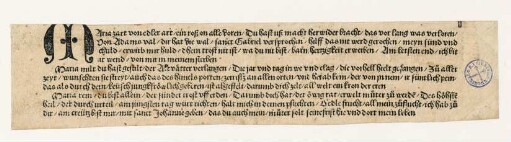 Maria zart von edler art / ein roß on alle doren / Du hast uß macht her wider bracht / das vor lang was verloren /
Von Adams val / dir hat die wal / sanct Gabriel versprochen / hilff das nit werd gerochen / meyn sünd und
schuld / erwirb mir huld / dann kein trost ist / wa du nit bist / barmhertzigkeit erwerben / Am letsten end / ich bit
nit wend / von mir in meinem sterben /
Maria milt du hast gestilt / der Altväter verlangen / Die jar und tag in we und clag / die vorhell hielt gefangen / Zu aller
zeyt / wünschten sie streyt / auch das des himels porten / zerriß an allen orten / und herab kem / der von in nem / ir schwere pen
das als durch dein keüsch junckfröwlich geberen / ist abgestelt / darumb dich zelt / all welt ein kron der eren
Maria rein / du bist allein / der sünder trost uff erden / Darumb dich hat / der ewig rat / erwelt / müter zu werden / Des höchste
heil / der durch urteil / am jüngsten tag würt richten / halt mich in deinen pflichten / O edle frucht / all mein zuflucht / ich hab zu
dir / am creütz bist mir / mit sanct Johanns geben / das du auch mein / müter solt sein / frist hie und dort mein leben